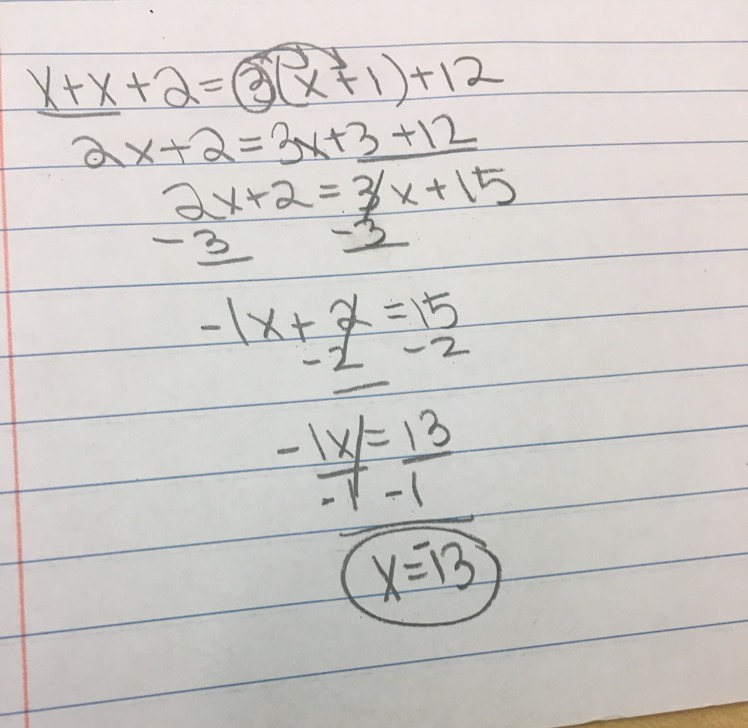 x+x+2=3(x+1)+12
2x+2=3x+3+12
2x+2=3x+15
-3 -3
-1x+2=15
-2 -2
-1x=13
-1 -1
x=-13